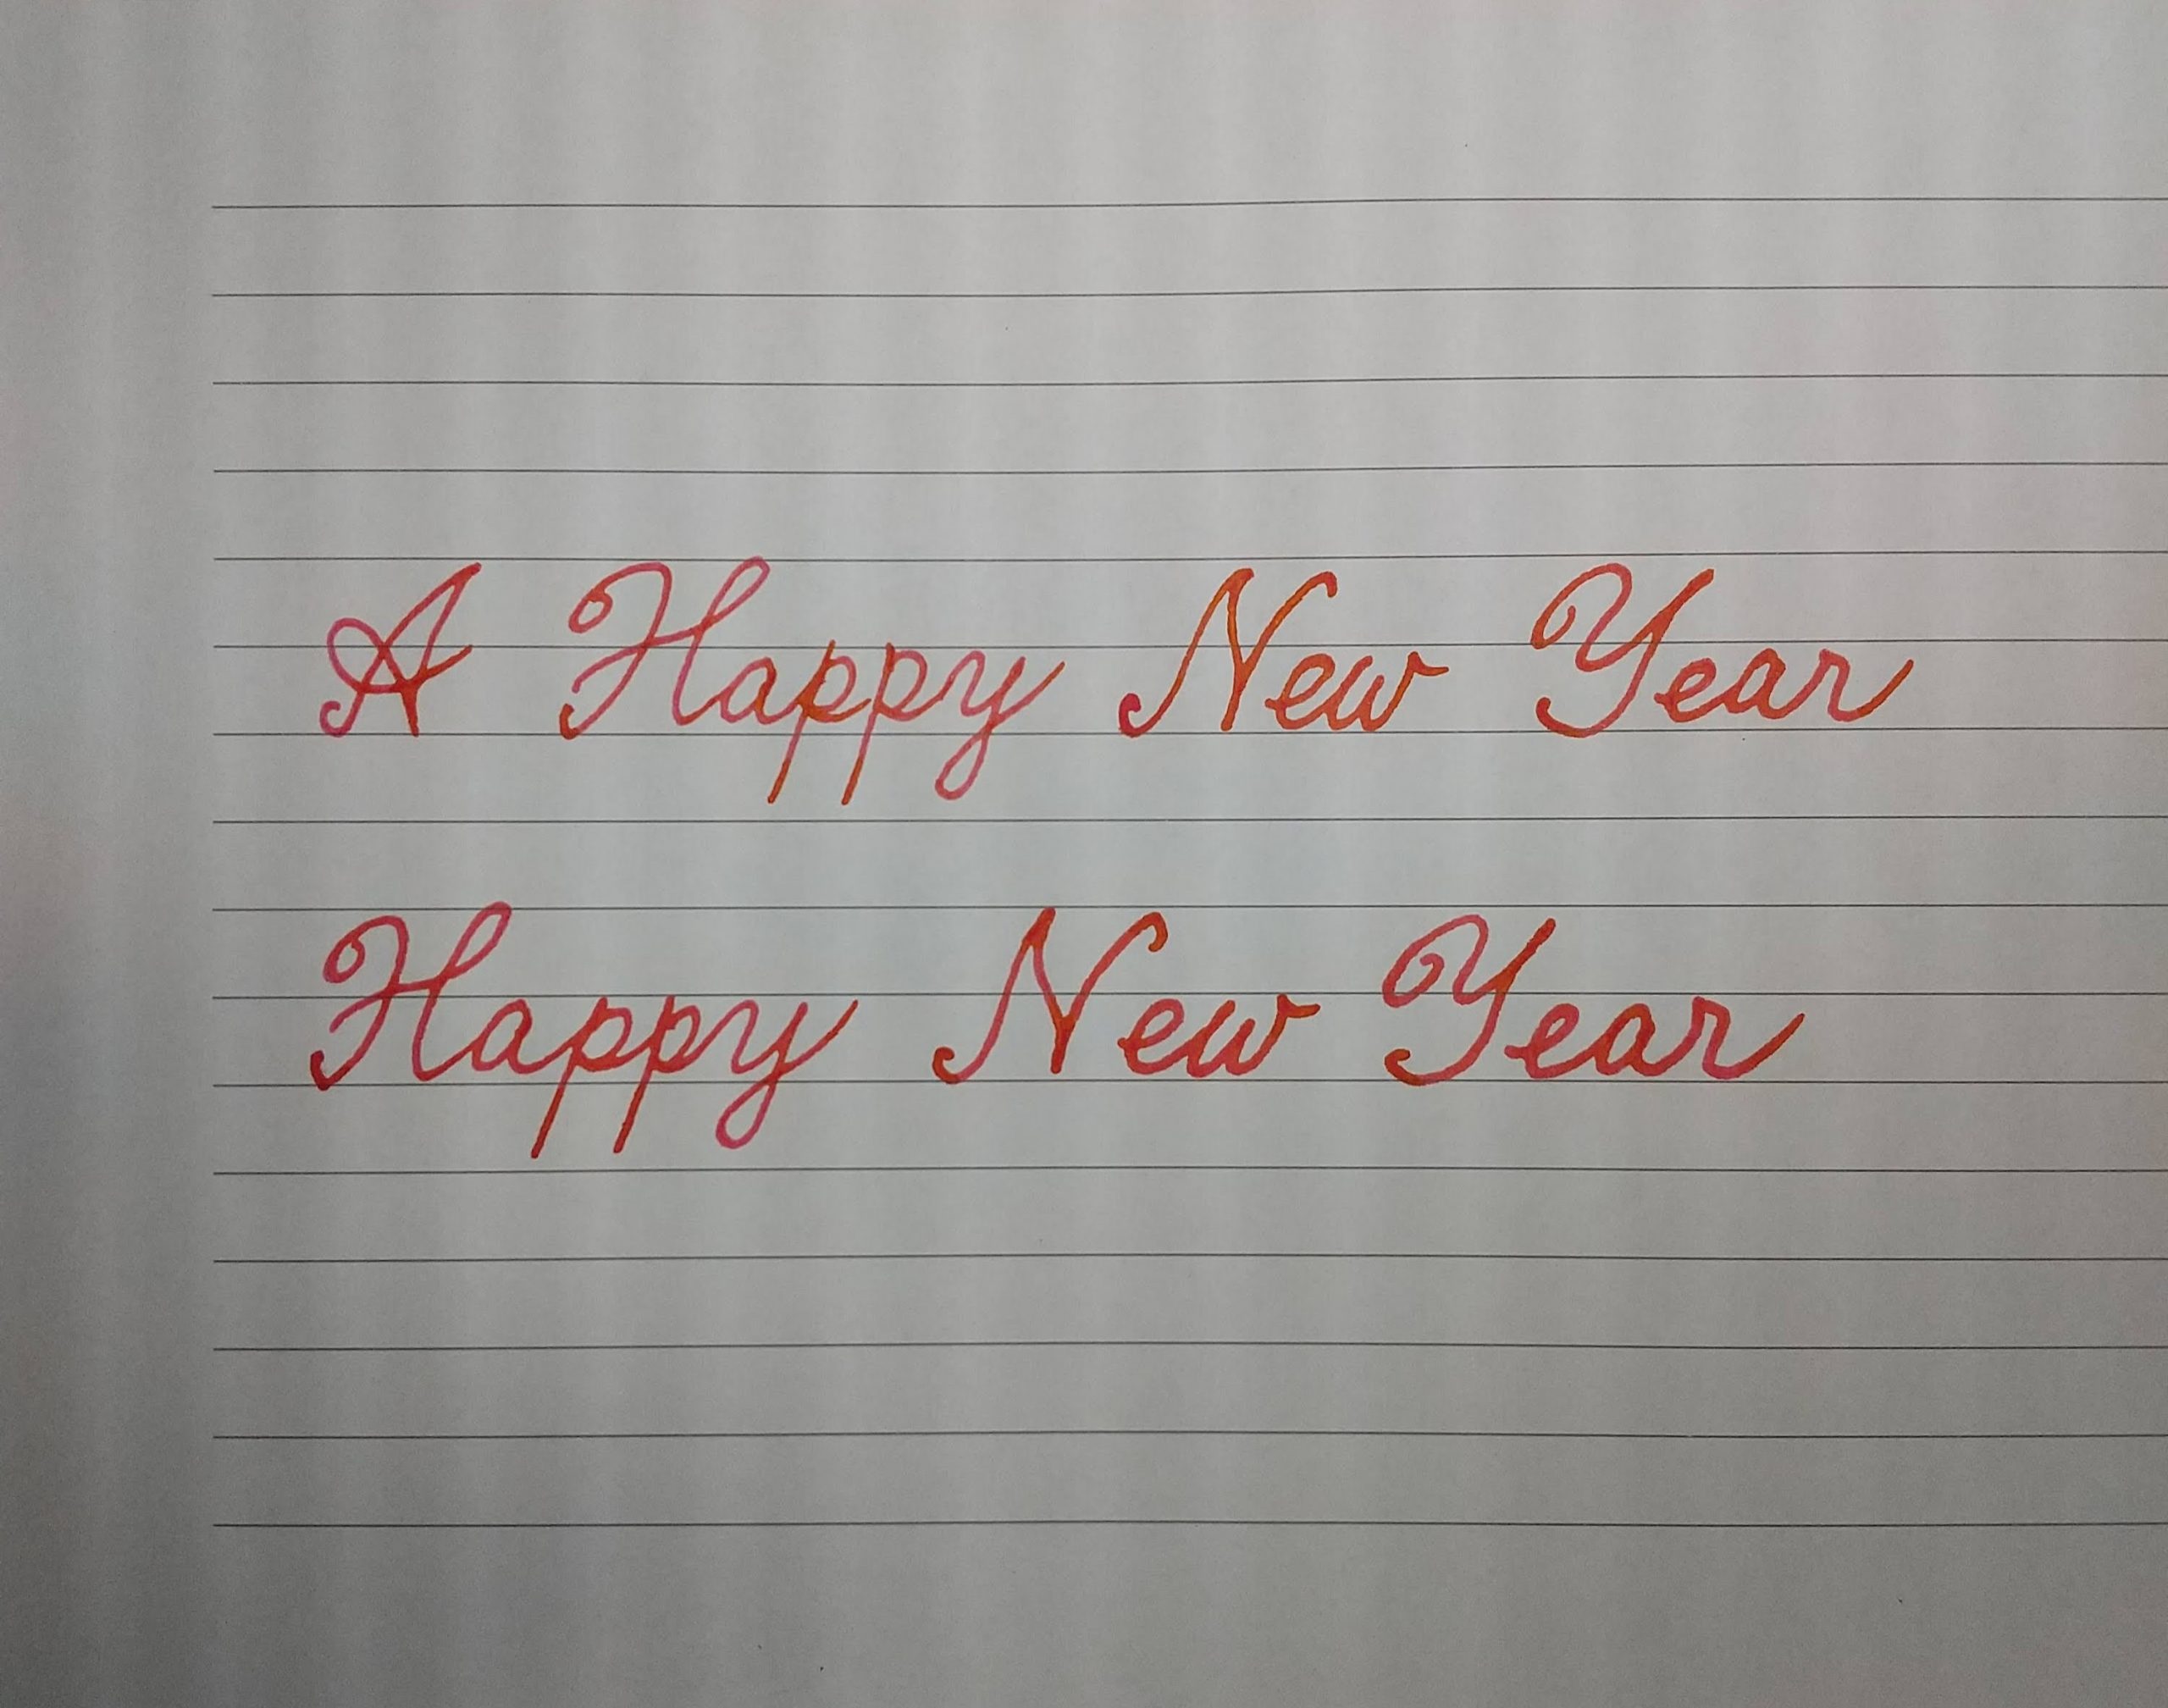 A Happy New Year
Happy New Year